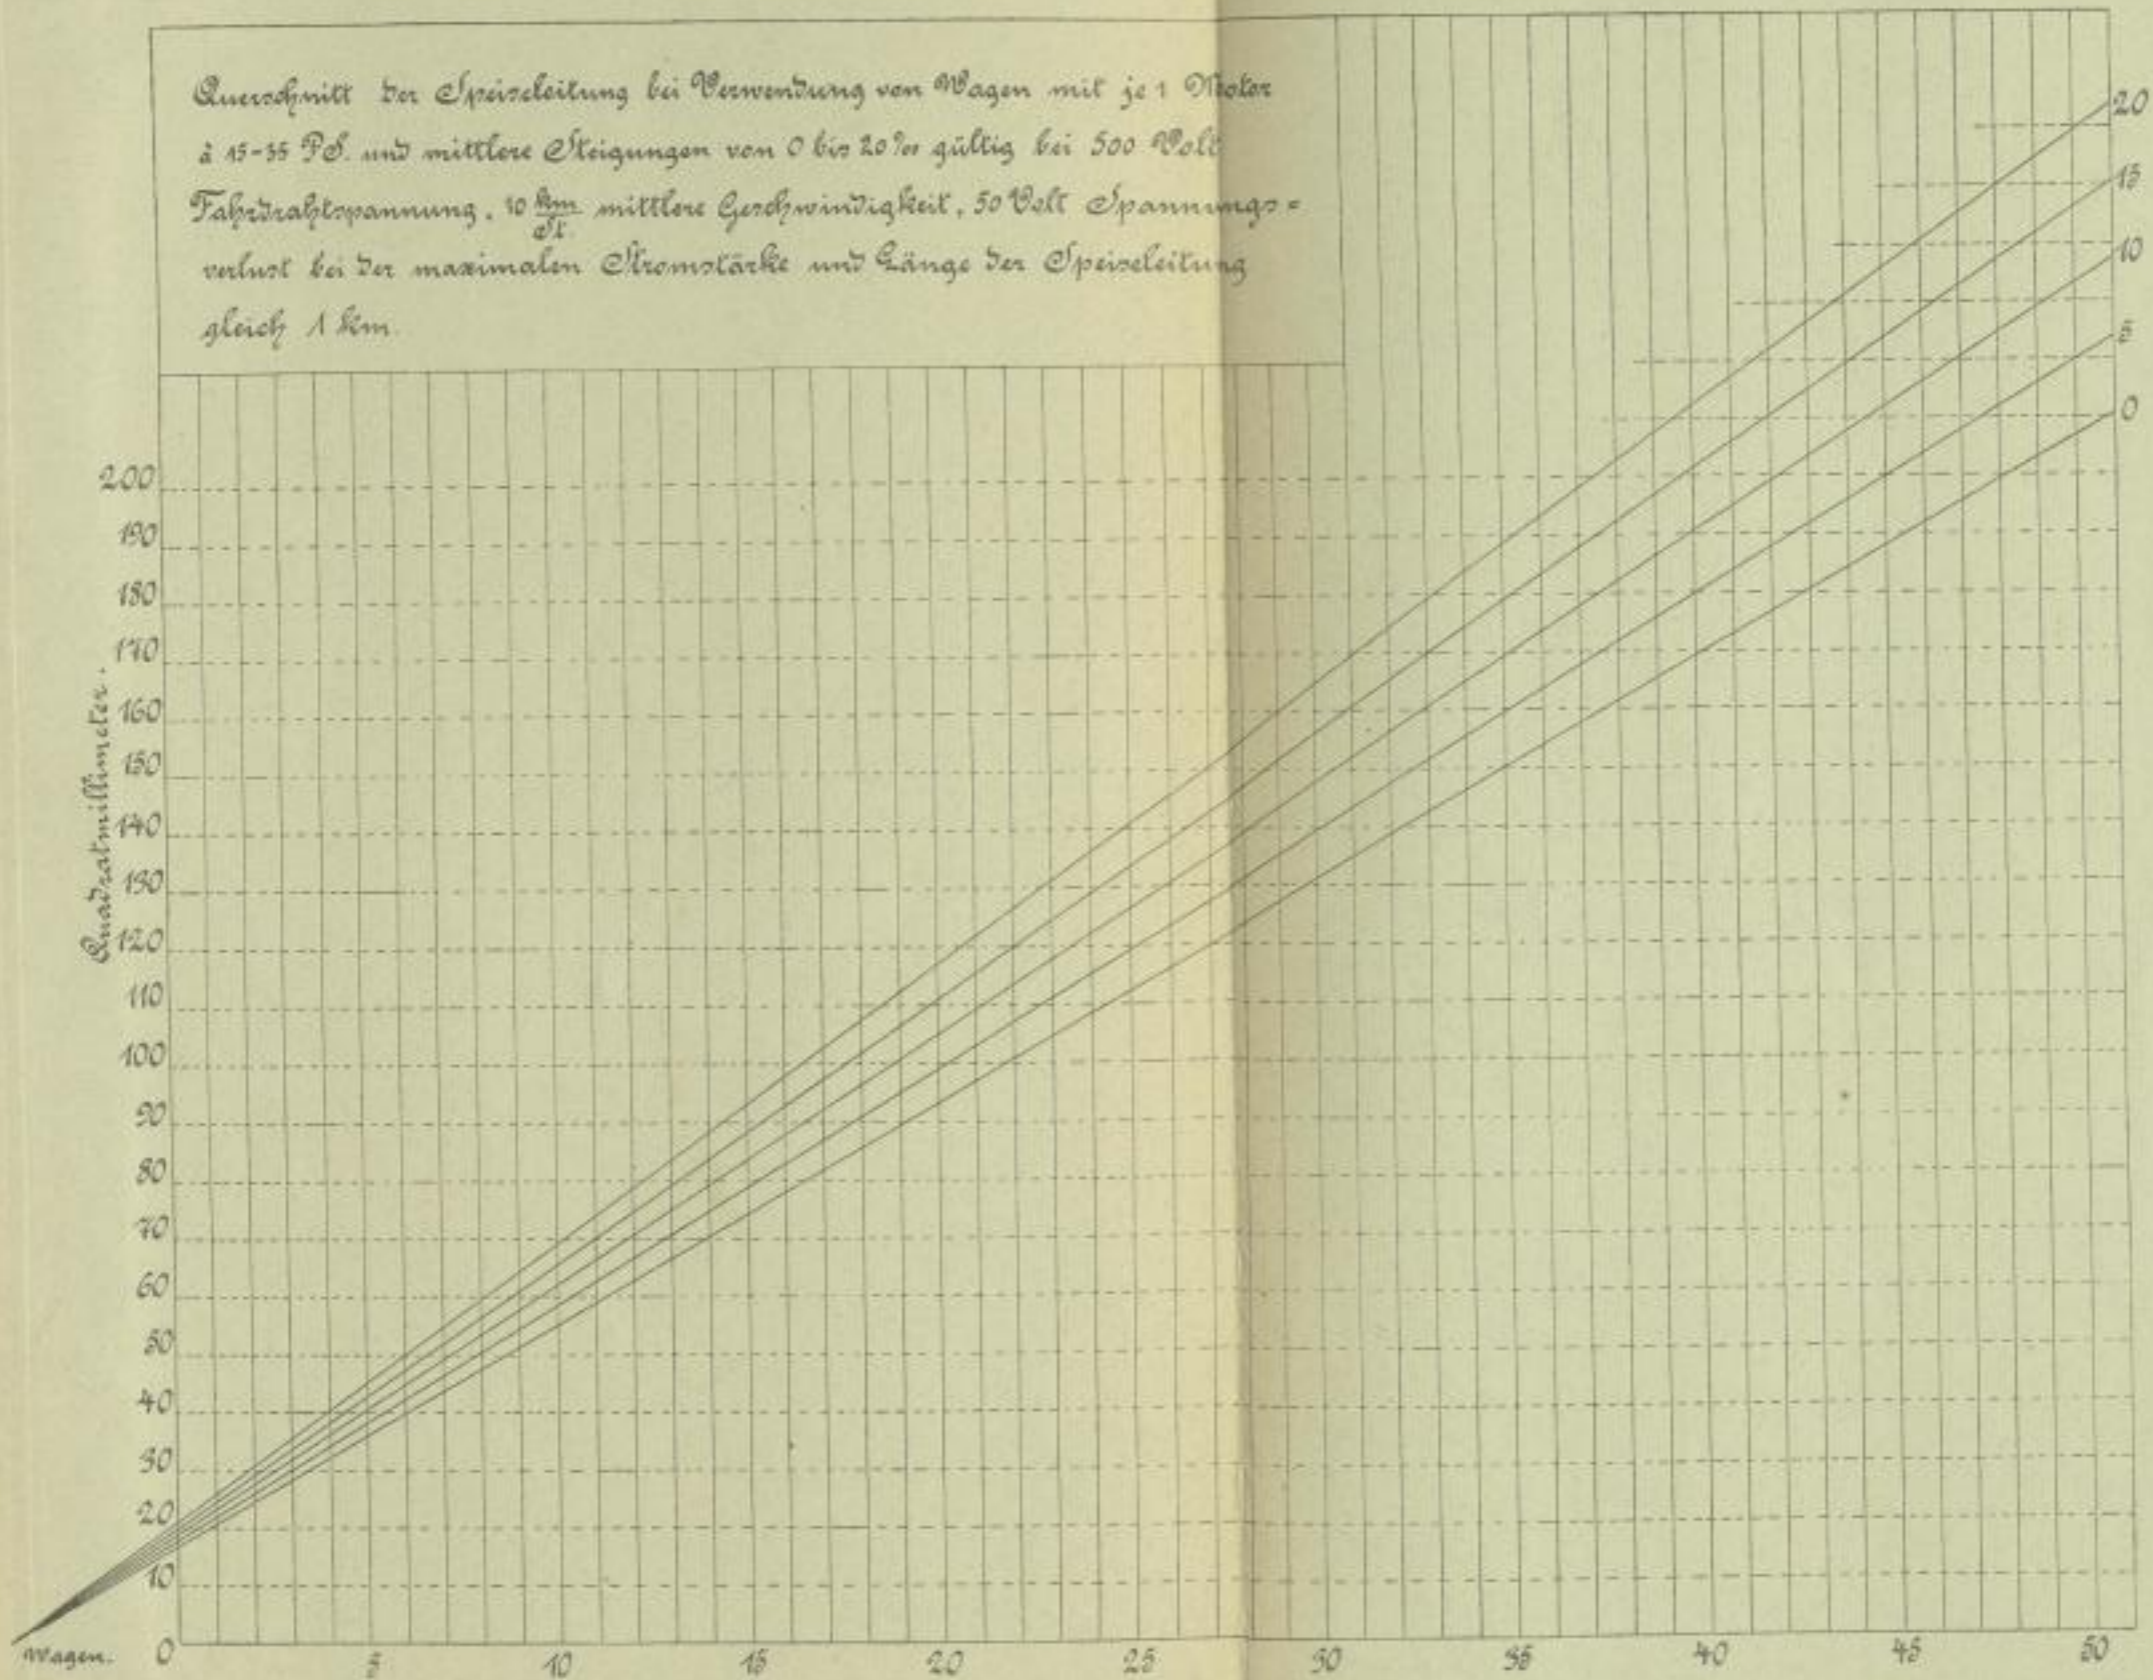 Querschnitt der Speiseleitung bei Verwendung von Wagen mit je 1 Motor
à 15-35 PS. und mittlere Steigungen von 0 bis 20‰ gültig bei 500 Volt
Fahrdrahtspannung, 10 km/St. mittlere Geschwindigkeit, 50 Volt Spannungs=
verlust bei der maximalen Stromstärke und Länge der Speiseleitung
gleich 1 km.
20
15
10
5
0
Quadratmillimeter.
200
190
180
170
160
150
140
130
120
110
100
90
80
70
60
50
40
30
20
10
Wagen. 0 5 10 15 20 25 30 35 40 45 50